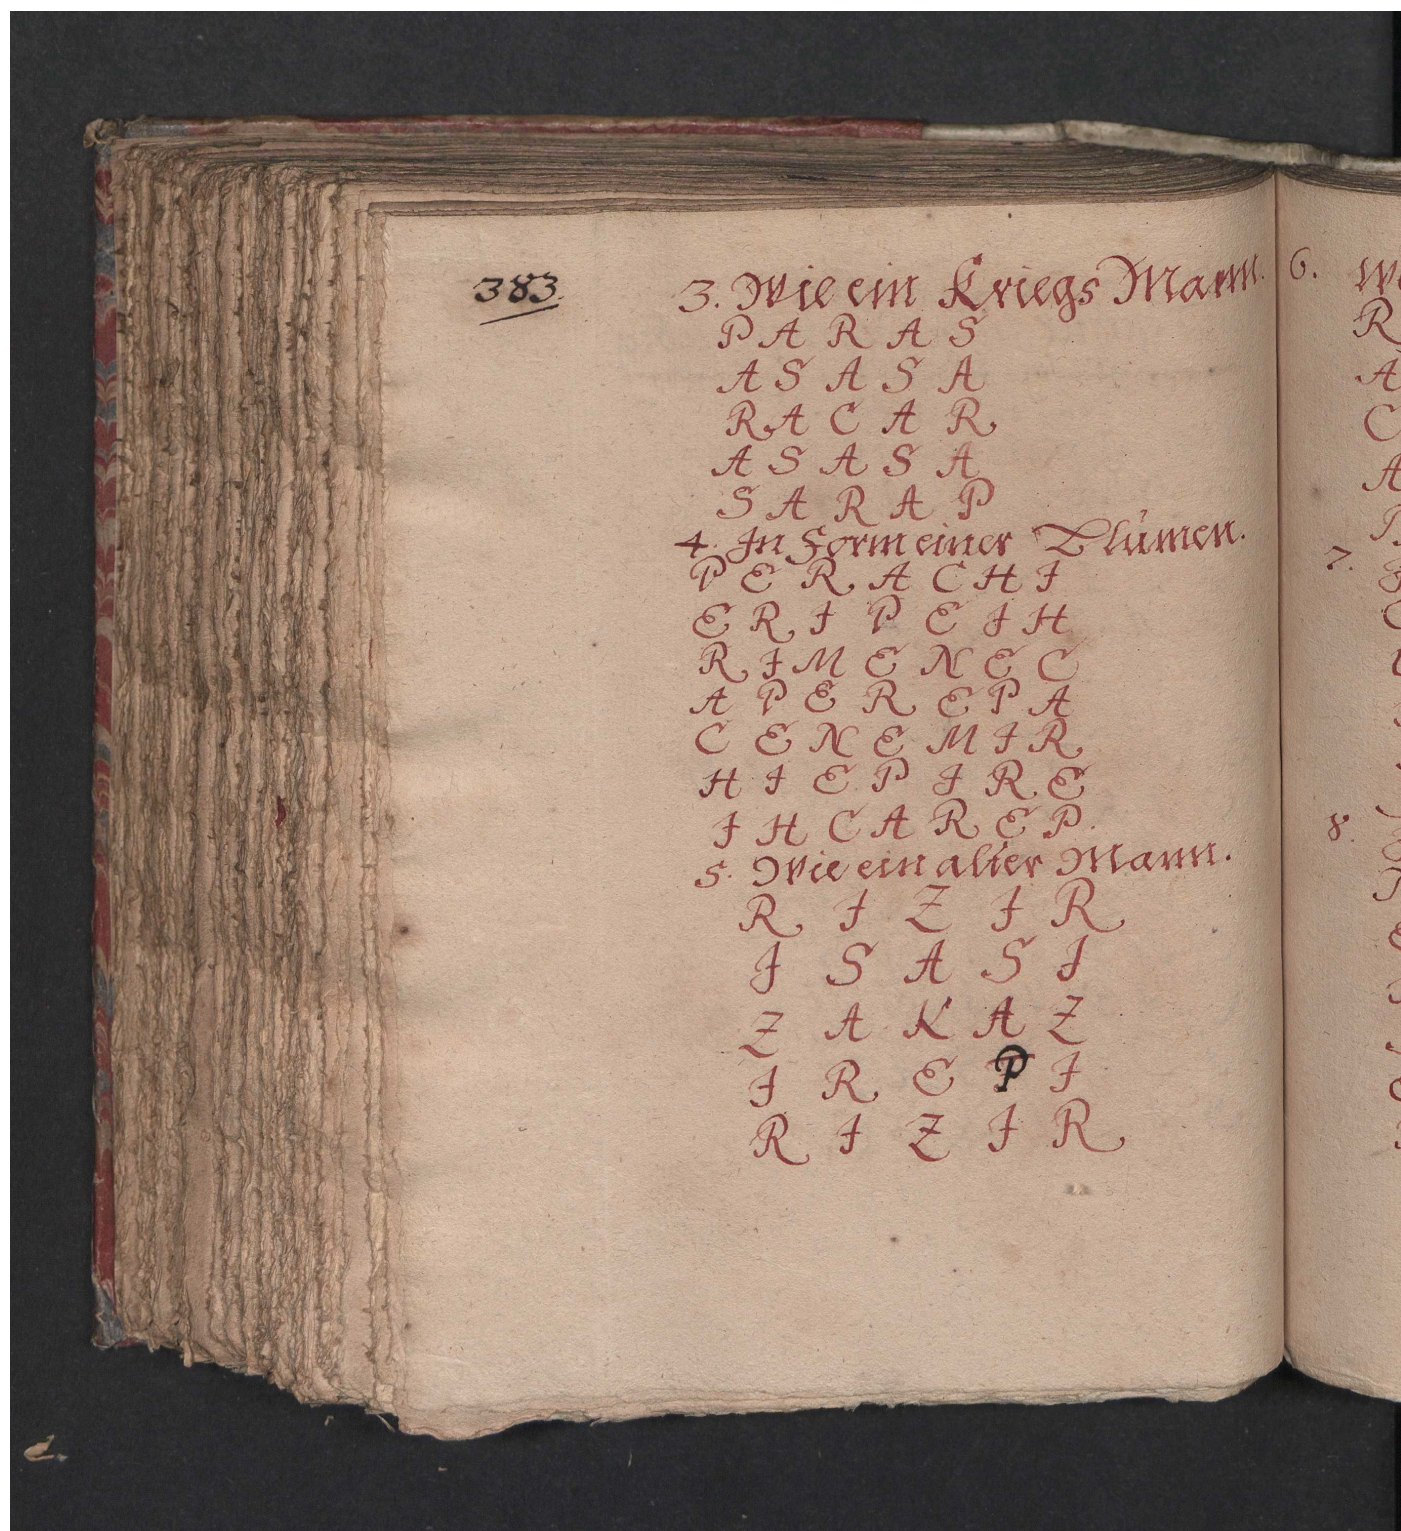 383.
3. Wie ein Kriegs Mann.
P A R A S
A S A S A
R A C A R
A S A S A
S A R A P
4. In Form einer Blumen.
P E R A C H I
E R I P E I H
R I M E N E C
A P E R E P A
C E N E M I R
H I E P I R E
I H C A R E P.
5. Wie ein alter Mann.
R I Z I R
I S A S I
Z A K A Z
I R E P I
R I Z I R
6. W
R
A
C
A
7.
8.